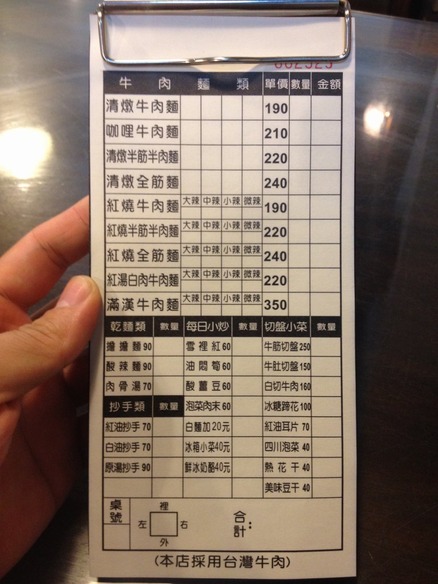 牛肉麵類 單價 數量 金額
清燉牛肉麵 190
咖哩牛肉麵 210
清燉半筋半肉麵 220
清燉全筋麵 240
紅燒牛肉麵 大辣 中辣 小辣 微辣 190
紅燒半筋半肉麵 大辣 中辣 小辣 微辣 220
紅燒全筋麵 大辣 中辣 小辣 微辣 240
紅湯白肉牛肉麵 大辣 中辣 小辣 微辣 220
滿漢牛肉麵 大辣 中辣 小辣 微辣 350
乾麵類 數量 每日小炒 數量 切盤小菜 數量
擔擔麵 90 雪裡紅 60 牛筋切盤 250
酸辣麵 90 油悶筍 60 牛肚切盤 150
肉骨湯 70 酸薑豆 60 白切牛肉 160
抄手類 數量 泡菜肉末 60 冰糖蹄花 100
紅油抄手 70 白麵加20元 紅油耳片 70
白油抄手 70 冰箱小菜40元 四川泡菜 40
原湯抄手 90 鮮冰奶酪40元 熱花干 40
美味豆干 40
桌號 裡 左 右 外 合計:
(本店採用台灣牛肉)